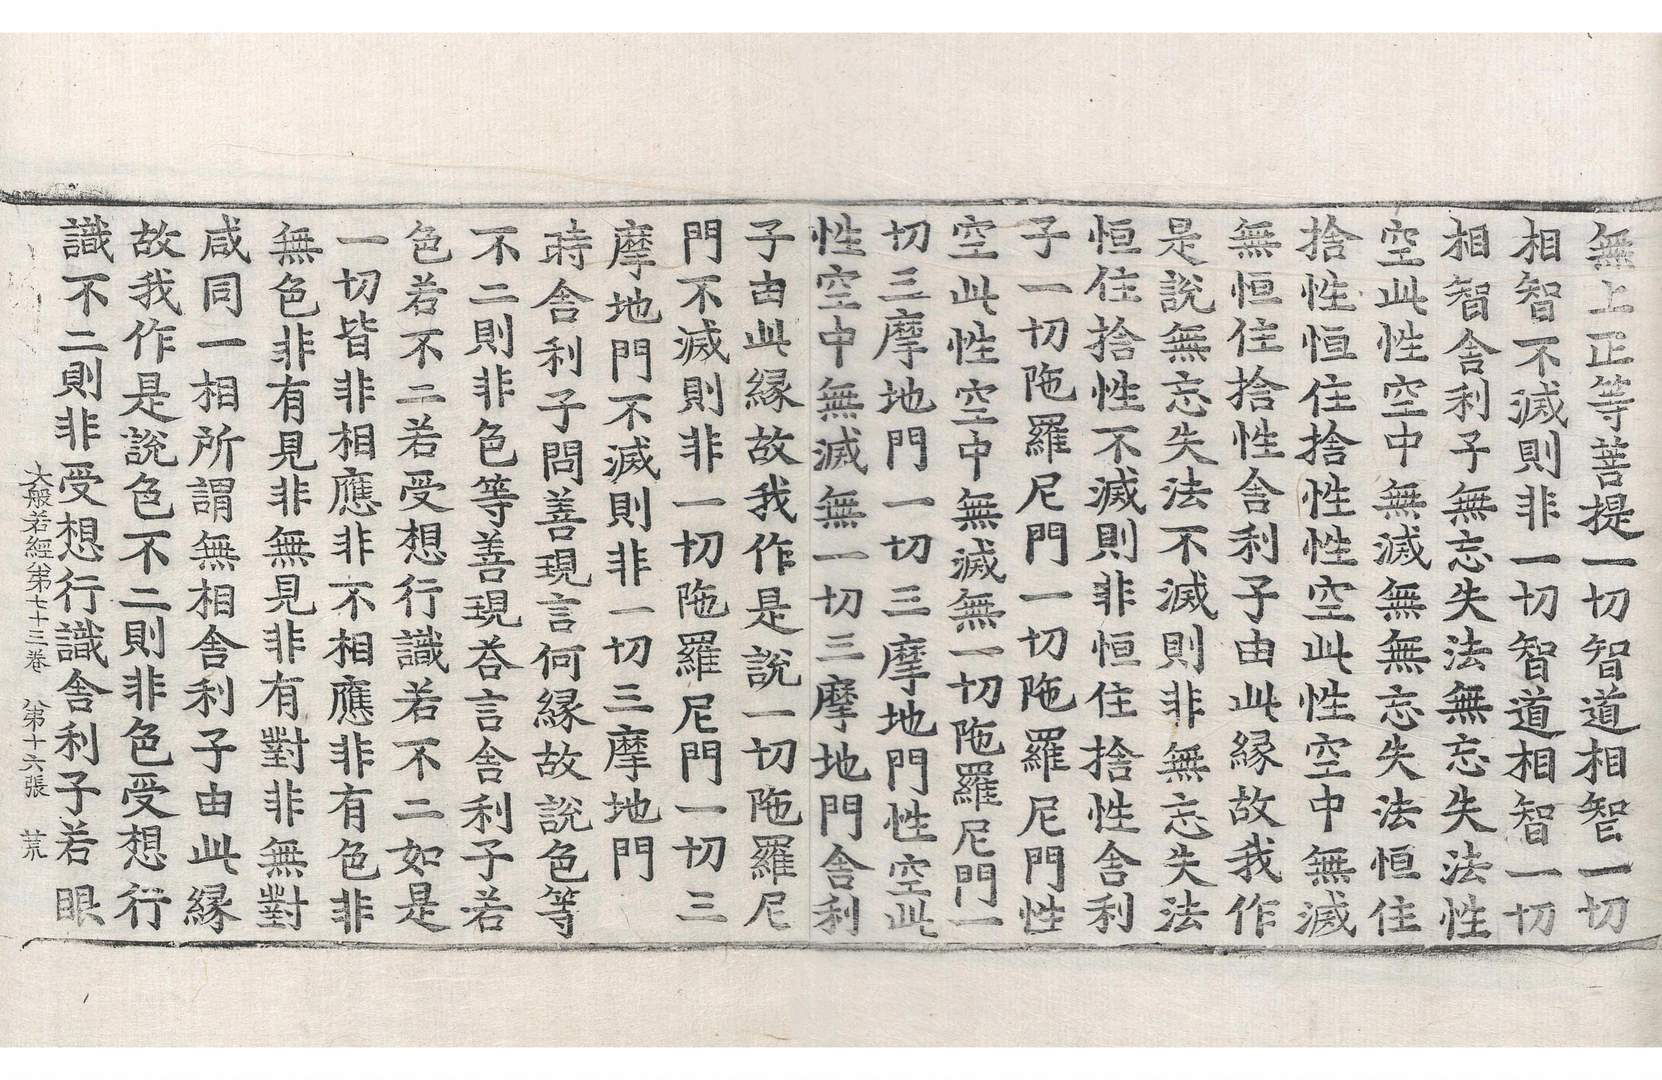 無上正等菩提一切智道相智一切
相智不滅則非一切智道相智一切
相智舍利子無忘失法無忘失法性
空此性空中無滅無無忘失法恒住
捨性恒住捨性性空此性空中無滅
無恒住捨性舍利子由此緣故我作
是說無忘失法不滅則非無忘失法
恒住捨性不滅則非恒住捨性舍利
子一切陁羅尼門一切陁羅尼門性
空此性空中無滅無一切陁羅尼門一
切三摩地門一切三摩地門性空此
性空中無滅無一切三摩地門舍利
子由此緣故我作是說一切陁羅尼
門不滅則非一切陁羅尼門一切三
摩地門不滅則非一切三摩地門
時舍利子問善現言何緣故說色等
不二則非色等善現荅言舍利子若
色若不二若受想行識若不二如是
一切皆非相應非不相應非有色非
無色非有見非無見非有對非無對
咸同一相所謂無相舍利子由此緣
故我作是說色不二則非色受想行
識不二則非受想行識舍利子若眼
大般若經第七十三卷 第十六張 荒